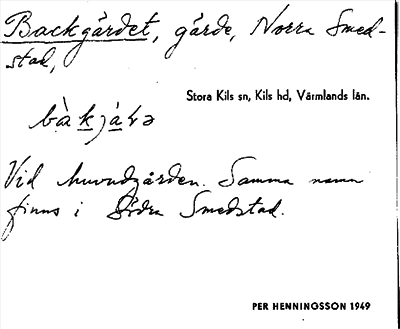 Backgårdet, gärde, Norra Smed-
stad,
Stora Kils sn, Kils hd, Värmlands län.
bàkjáɽə
Vid huvudgården. Samma namn
finns i Södra Smedstad.
PER HENNINGSSON 1949